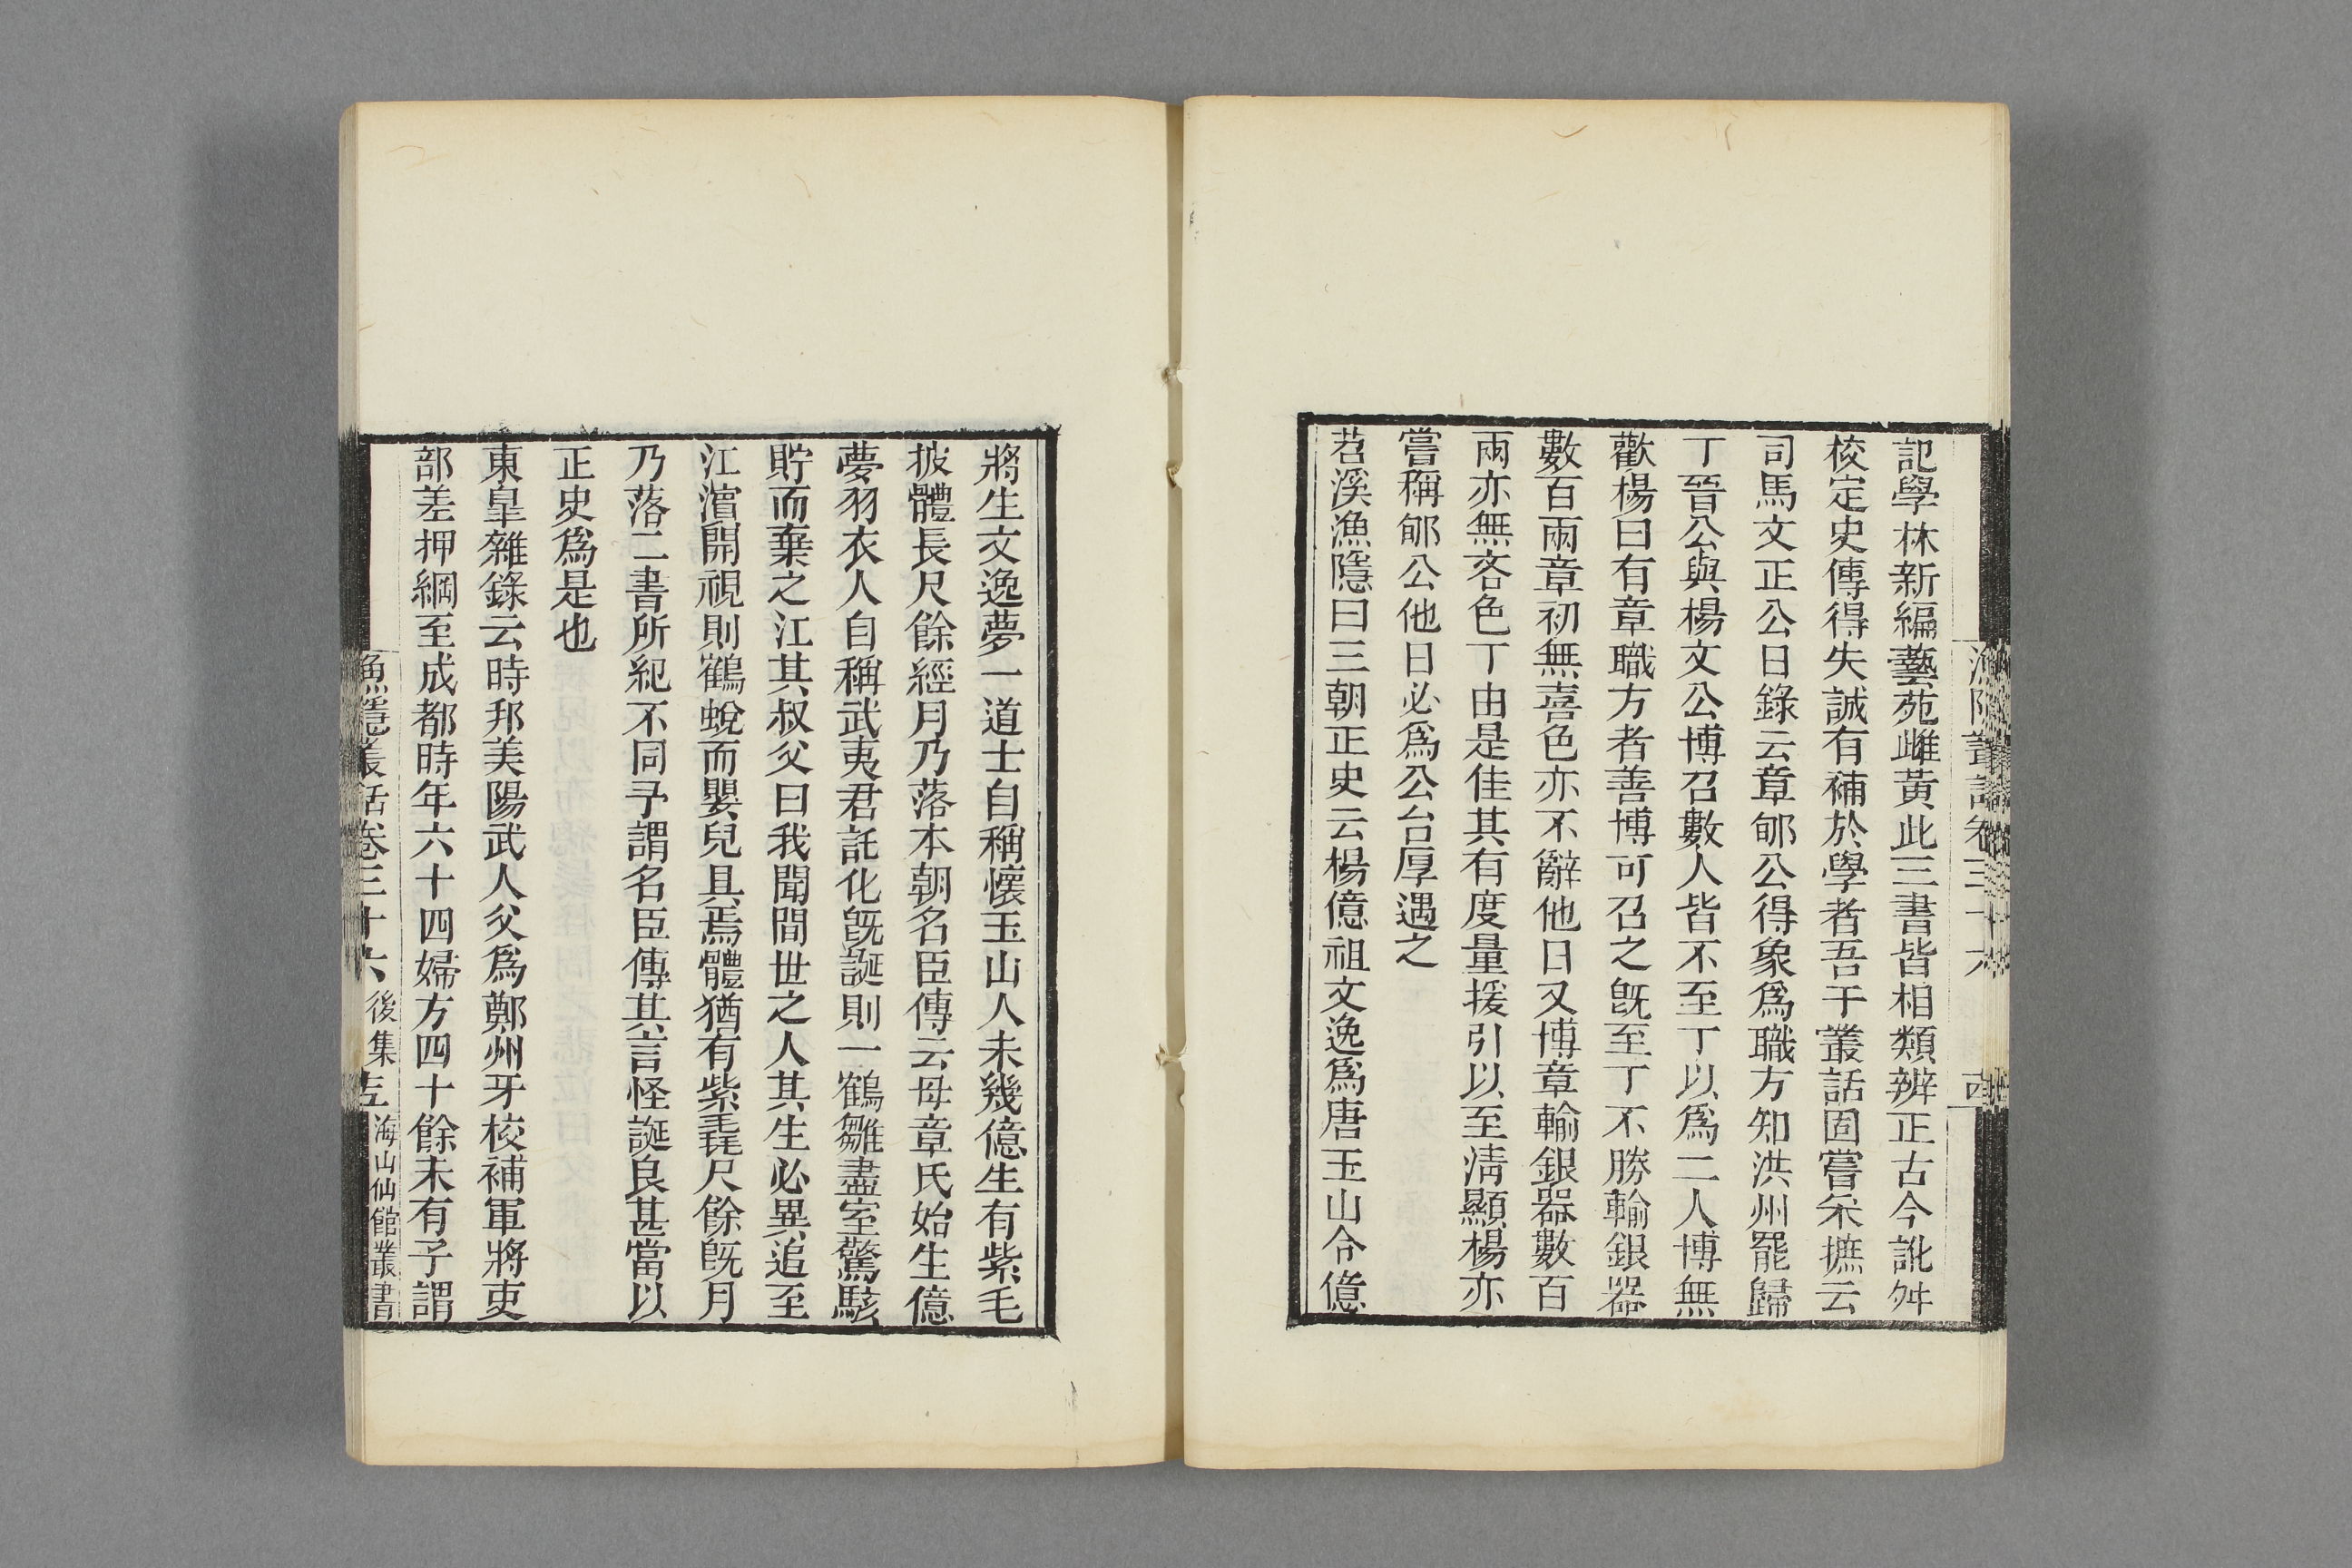 漁隱叢話卷三十六
記學林新編藝苑雌黃此三書皆相類辨正古今訛舛
校定史傳得失誠有補於學者吾于叢話固嘗采摭云
司馬文正公日錄云章郇公得象爲職方知洪州罷歸
丁晉公與楊文公博召數人皆不至丁以爲二人博無
歡楊曰有章職方者善博可召之旣至丁不勝輸銀器
數百兩章初無喜色亦不辭他日又博章輸銀器數百
兩亦無吝色丁由是佳其有度量援引以至淸顯楊亦
嘗稱郇公他日必爲公台厚遇之
苕溪漁隱曰三朝正史云楊億祖文逸爲唐玉山令億
將生文逸夢一道士自稱懷玉山人未幾億生有紫毛
披體長尺餘經月乃落本朝名臣傳云母章氏始生億
夢羽衣人自稱武夷君託化旣誕則一鶴雛盡室驚駭
貯而棄之江其叔父曰我聞間世之人其生必異追至
江濵開視則鶴蛻而嬰兒具焉體猶有紫毳尺餘旣月
乃落二書所紀不同予謂名臣傳其言怪誕良甚當以
正史爲是也
東皐雜錄云時邦美陽武人父爲鄭州牙校補軍將吏
部差押綱至成都時年六十四婦方四十餘未有子謂
漁隱叢話卷三十六 後集 海山仙館叢書